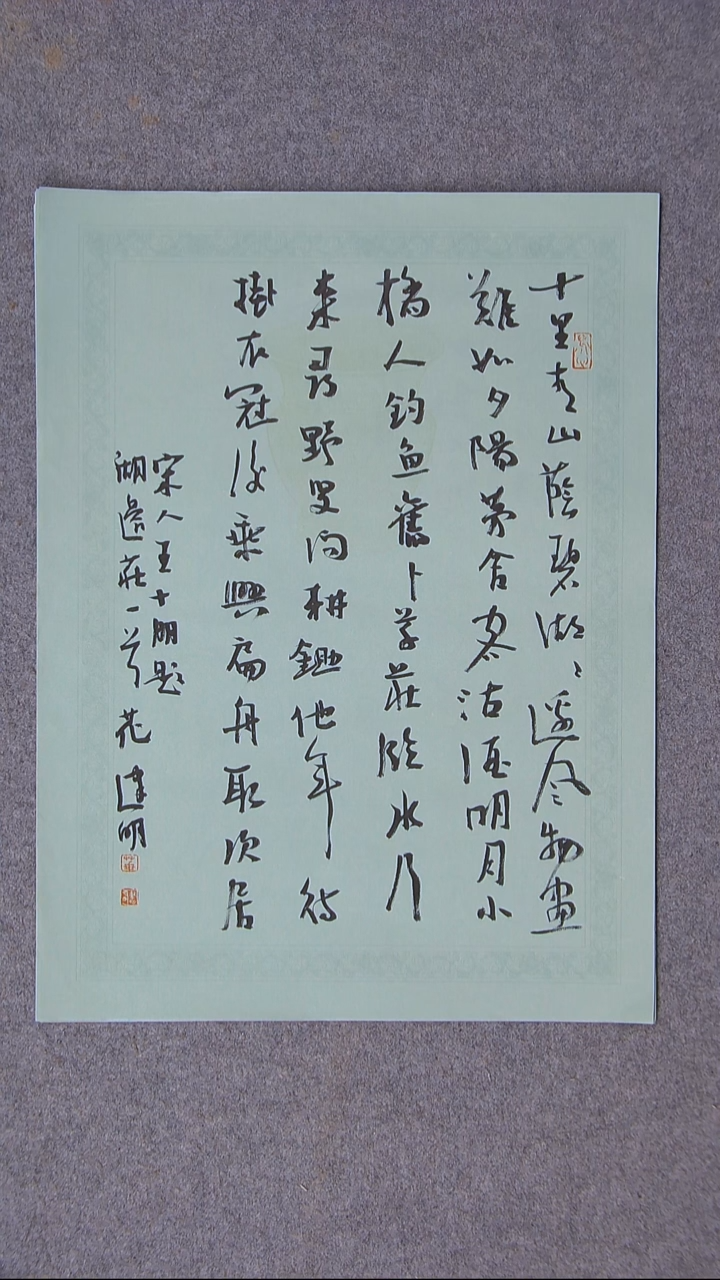 十里青山蔭碧湖〻邊風物畫
難如夕陽茅舍客沽酒明月小
橋人釣魚舊卜草莊臨水竹
來尋野叟問耕鋤他年待
掛衣冠後乘興扁舟取次居
宋人王十朋題
湖邊莊一首 花建明